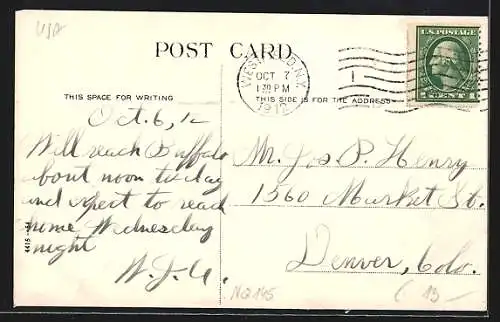 USA
POST CARD
OCT 7
1 30 PM
1912
U.S. POSTAGE
1 CENT 1
THIS SPACE FOR WRITING
THIS SIDE IS FOR THE ADDRESS
Oct. 6, 12
Will reach Buffalo
bout noon today
and expect to reach
home Wednesday
night
Mr. Jos P. Henry
1560 Market St.
Denver, Colo.
( 13 -